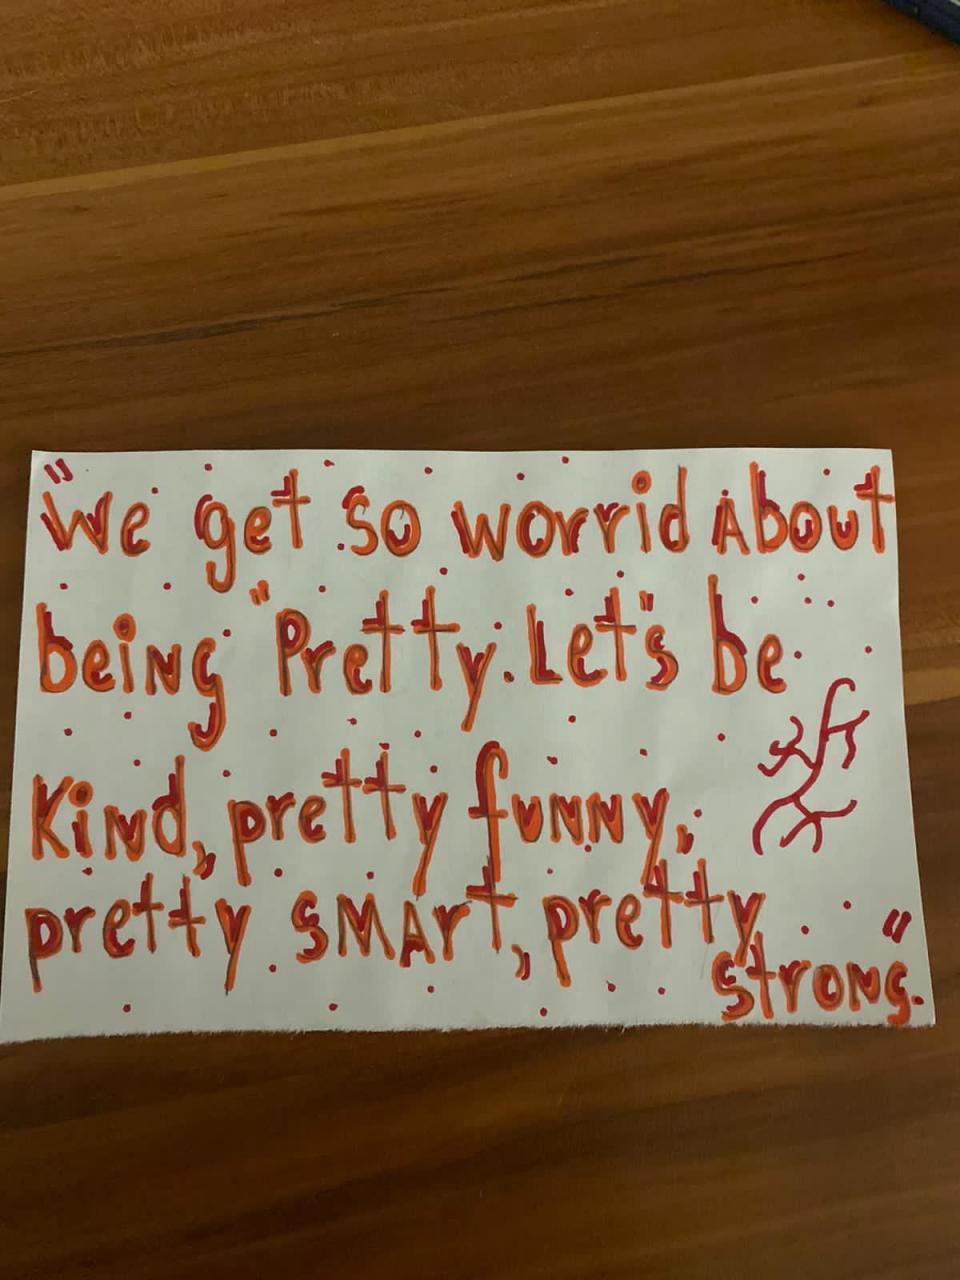 "We get so worrid About
being "Pretty. Let"s be
Kind, pretty funny,
pretty smart, pretty
strong."